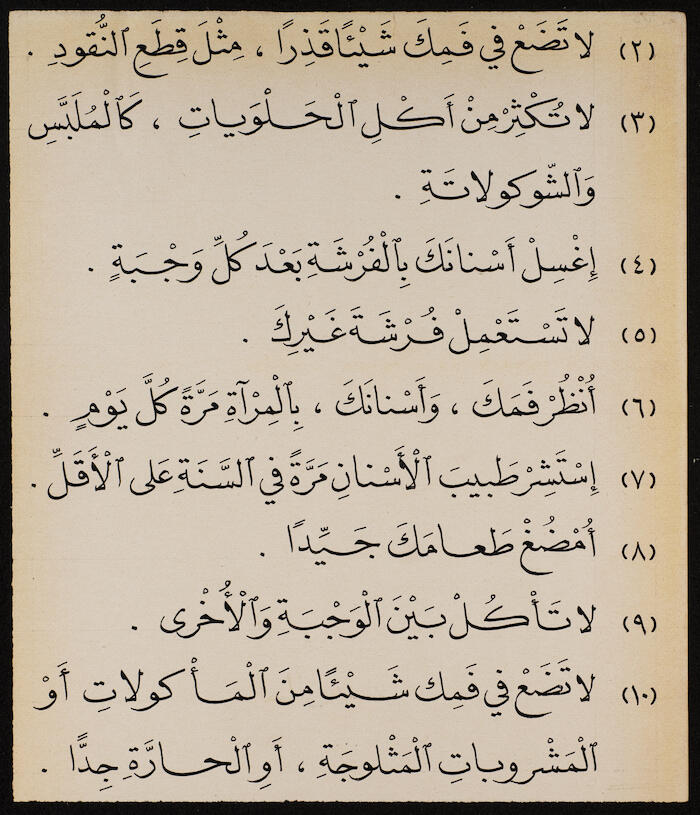 (٢) لا تَضَعْ في فَمِكَ شَيْئًا قَذِرًا ، مِثْلَ قِطَعِ ٱلنُّقودِ .
(٣) لا تُكْثِرْ مِنْ أَكْلِ ٱلْحَلْوَياتِ ، كَٱلْمُلَبَّسِ
وَٱلشّوكولاتَةِ .
(٤) إِغْسِلْ أَسْنانَكَ بِٱلْفُرْشَةِ بَعْدَ كُلِّ وَجْبَةٍ .
(٥) لا تَسْتَعْمِلْ فُرْشَةَ غَيْرِكَ .
(٦) أُنْظُرْ فَمَكَ ، وَأَسْنانَكَ ، بِٱلْمِرْآةِ مَرَّةً كُلَّ يَوْمٍ .
(٧) إِسْتَشِرْ طَبيبَ ٱلْأَسْنانِ مَرَّةً في ٱلسَّنَةِ عَلى ٱلْأَقَلِّ .
(٨) أُمْضُغْ طَعامَكَ جَيِّدًا .
(٩) لا تَأْكُلْ بَيْنَ ٱلْوَجْبَةِ وَٱلْأُخْرى .
(١٠) لا تَضَعْ في فَمِكَ شَيْئًا مِنَ ٱلْمَأْكولاتِ أَوْ
ٱلْمَشْروباتِ ٱلْمَثْلوجَةِ ، أَوِ ٱلْحارَّةِ جِدًّا .